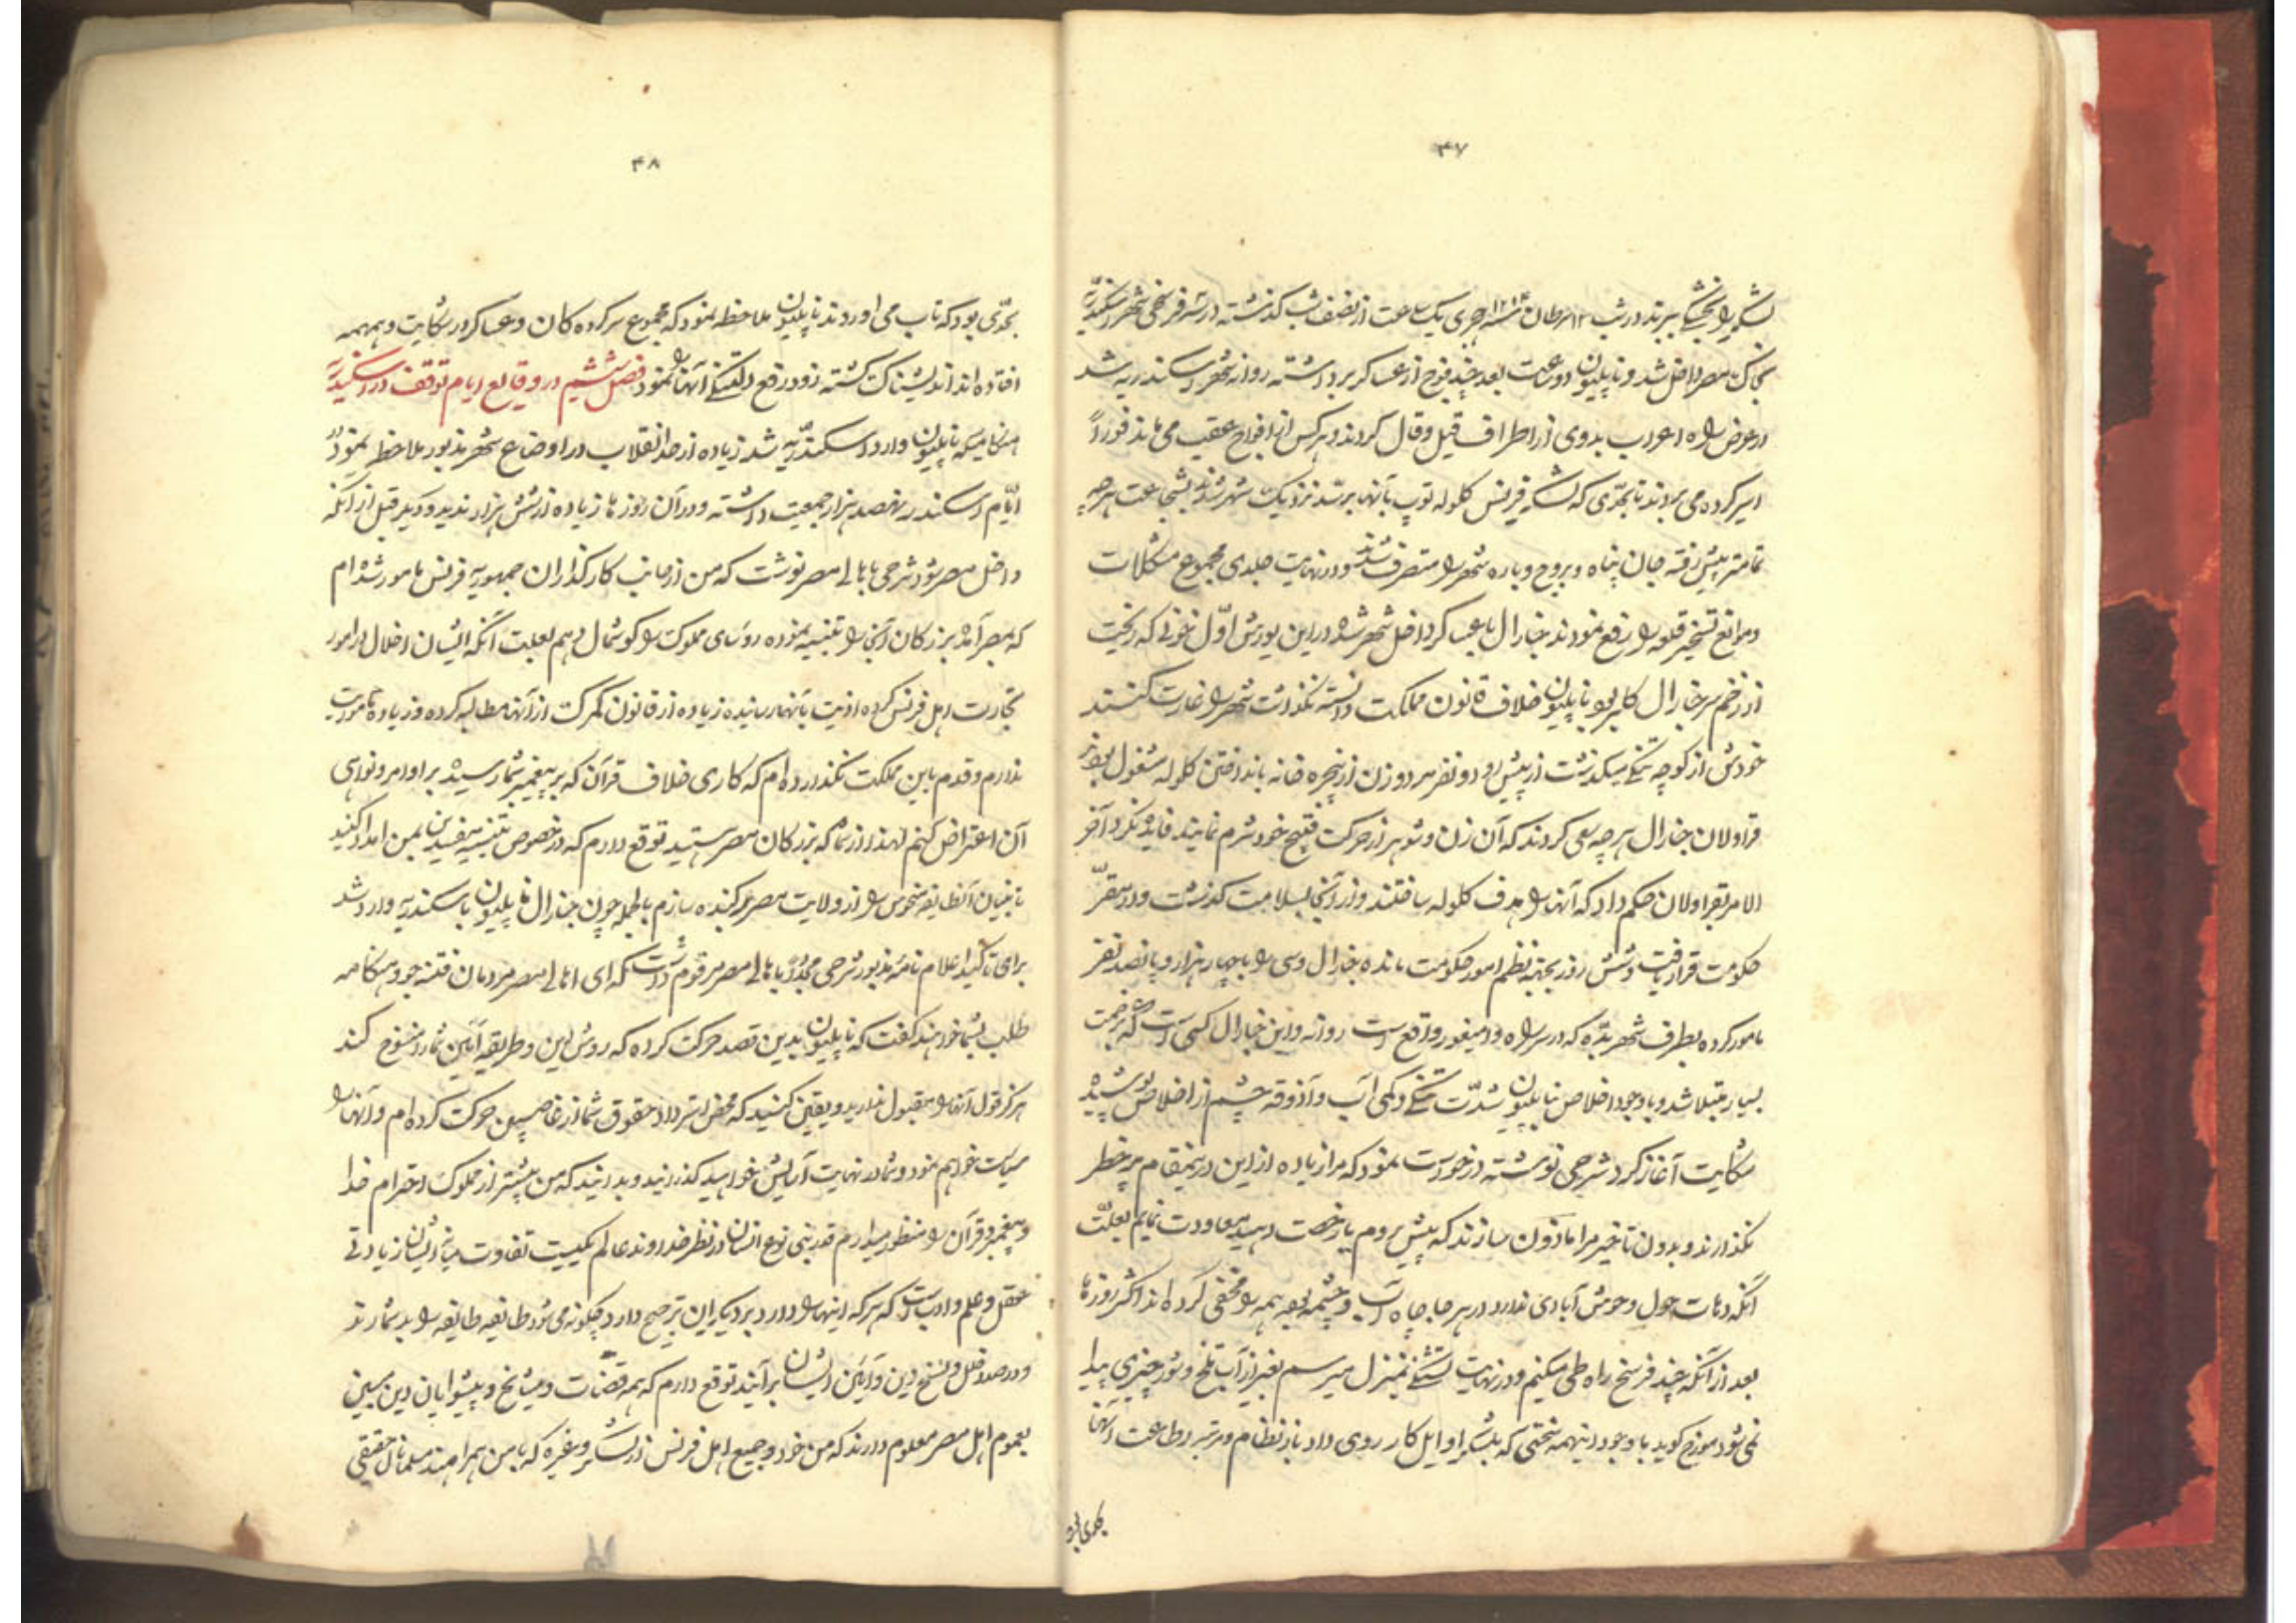 ۴۷
لشکر را بخشکی ببرند در شب ۱۲ سرطان سنه ۱۲۱۳ هجری یک ساعت از نصف شب گذشته در سه فرسخی شهر اسکندریه
بخاک مصر داخل شد و ناپلیون دو ساعت بعد چند فوج از عساکر برداشته روانه شهر اسکندریه شد
در عرض راه اعراب بدوی از اطراف قیل و قال کردند و هر کس از افواج عقب می ماند فوراً
اسیر کرده می بردند تا بحدی که لشکر فرنس گلوله توپ بآنها برسد نزدیک شهر شدند بشجاعت هر چه
تمامتر پیش رفته جان پناه و بروج و باره شهر را متصرف شدند و در نهایت جلدی مجموع مشکلات
و موانع تسخیر قلعه را رفع نمودند جنارال با عساکر داخل شهر شده در این یورش اول خونی که ریخت
از زخم سر جنارال کلبر بود ناپلیون خلاف قانون مملکت دانسته نگذاشت شهر را غارت کنند
خودش از کوچه تنگی میگذشت از پیش رو دو نفر مرد و زن از پنجره خانه بانداختن گلوله مشغول بودند
قراولان جنارال هر چه سعی کردند که آن زن و شوهر از حرکت قبیح خود شرم نمایند فایده نکرد آخر
الامر بقراولان حکم داد که آنها را هدف گلوله ساختند و از آنجا بسلامت گذشت و در مقرّ
حکومت قرار یافت و شش روز بجهة نظم امور حکومت مانده جنارال دسی را با چهار هزار و پانصد نفر
مامور کرده بطرف شهر بدّه که در سر راه دامینغور واقع است روانه و این جنارال کسی است که بزحمت
بسیار مبتلا شد و با وجود اخلاص ناپلیون شدّت تنگی و کمی آب و آذوقه چشم از اخلاص پوشیده
شکایت آغاز کرد شرحی نوشته درخواست نمود که مرا زیاده از این در اینمقام پر خطر
نگذارند و بدون تاخیر مرا ماذون سازند که پیش بروم یا رخصت دهید معاودت نمایم بعلّت
آنکه دهات حول و حوش آبادی ندارد در هر جا چاه آب و چشمه بوده همه را مخفی کرده اند اکثر روزها
بعد از آنکه چند فرسخ راه طی میکنیم و در نهایت تشنگی بمنزل میرسیم بغیر از آب تلخ و شور چیزی پیدا
نمی شود مورخ گوید با وجود اینهمه سختی که بلشکر اوایل کار روی داد باز نظام و مرتبه و اطاعت آنها
۴۸
بحدّی بود که تاب می اوردند ناپلیون ملاحظه نمود که مجموع سرکرده کان و عساکر در شکایت و همهمه
افتاده اند اندیشناک گشته زود رفع دلتنگی آنها را نمود فصل ششم در وقایع ایام توقف در اسکندریّه
هنگامیکه ناپلیون وارد اسکندریّه شد زیاده از حد انقلاب در اوضاع شهر مذبور ملاحظه نمود در
ایّام اسکندر نهصد هزار جمعیت داشته و در آن روزها زیاده از شش هزار ندید و دیگر قبل از آنکه
داخل مصر شود شرحی باهالی مصر نوشت که من از جانب کارگذاران جمهوریه فرنس مامور شده ام
که بمصر آمده بزرگان آنجا را تنبیه نموده روسای مملوک را گوشمال دهم بعلت آنکه ایشان اخلال در امور
تجارت اهل فرنس کرده اذیت بآنها رسانیده زیاده از قانون گمرک از آنها مطالبه کرده و زیاده ماموریت
ندارم و قدم باین مملکت نگذارده ام که کاری خلاف قرآن که بر پیغمبر شما رسیده بر اوامر و نواهی
آن اعتراض کنم لهذا از شما که بزرگان مصر هستید توقع دارم که در خصوص تنبیه مفسدین بمن امداد کنید
تا بنیان آنطایفه منحوس را از ولایت مصر برکنده سازم بالجمله چون جنرال ناپلیون باسکندریه وارد شد
برای تاکید اعلام نامه مذبور شرحی مجدّدا باهالی مصر مرقوم داشت که ای اهالی مصر مردمان فتنه جو و هنگامه
طلب بشما خواهند گفت که ناپلیون بدین قصد حرکت کرده که روش دین و طریقه آئین شما را منسوخ کند
هرگز قول آنها را مقبول ندارید و یقین کنید که محض استرداد حقوق شما از غاصبین حرکت کرده ام و آنها را
سیاست خواهم نمود و شما در نهایت آسایش خواهید گذرانید و بدانید که من بیشتر از مملوک احترام خدا
و پیغمبر و قرآن را منظور میدارم قدر بنی نوع انسان در نظر خداوند عالم یکیست تفاوت میانه ایشان زیادتی
عقل و علم و ادب است که هر که اینها را دارد بر دیگران ترجیح دارد چگونه می شود طایفه طایفه را بد شمارند
و در صدد قتل و نسخ دین و آئین ایشان برآیند توقع دارم که همه قضات و مشایخ و پیشوایان دین مبین
بعموم اهل مصر معلوم دارند که من خود و جمیع اهل فرنس از لشکر و غیره که با من همراهند مسلمانان حقیقی